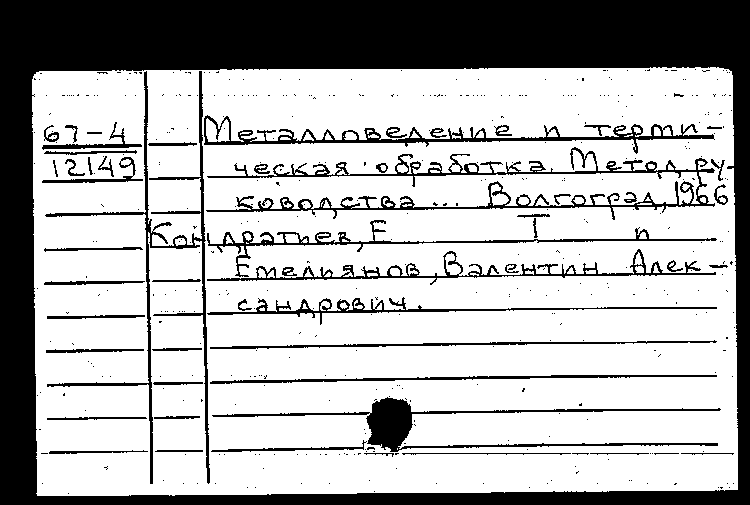 67-4 Металловедение и терми-
12149 ческая обработка. Метод. ру-
ководства ... Волгоград, 1966
Кондратьев, Е Т и
Емельянов, Валентин Алек-
сандрович.